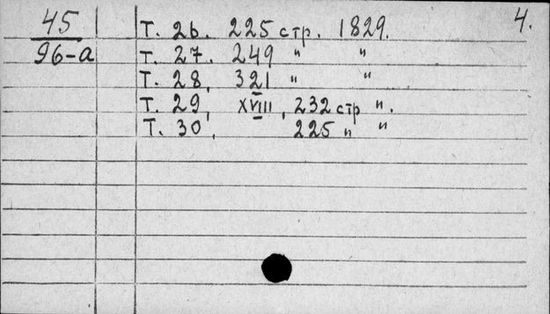 4.
45
96-а
Т. 26. 225 стр. 1829.
Т. 27. 249 " "
Т. 28, 321 " "
Т. 29, XVIII, 232 стр ".
Т. 30, 225 " "